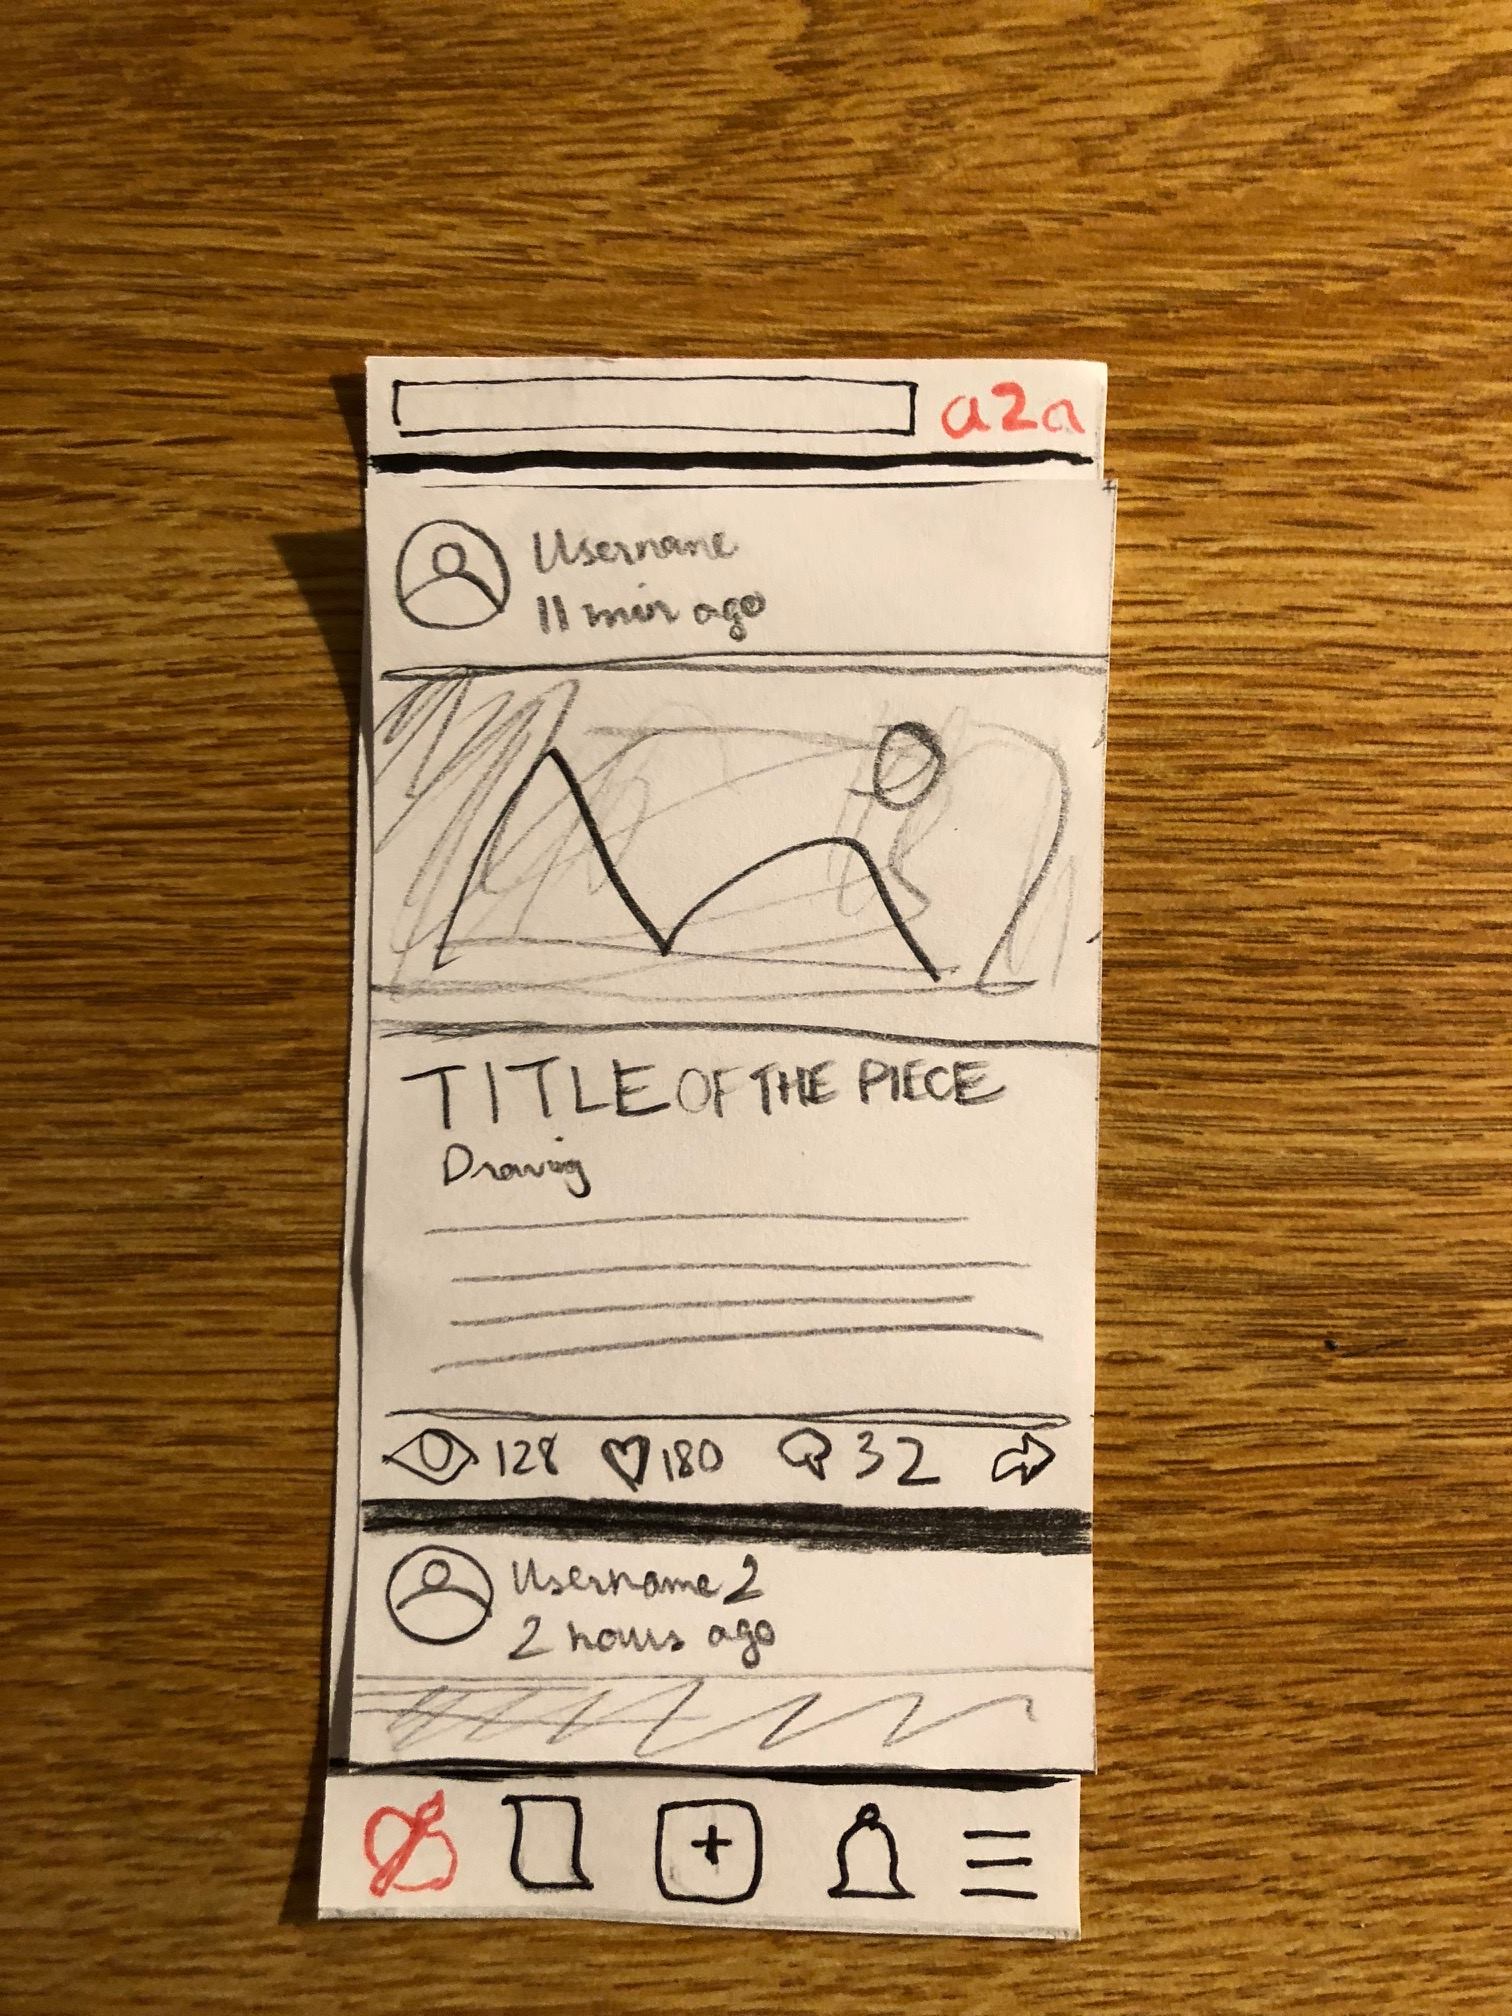 a2a
Username
11 min ago
TITLE OF THE PIECE
Drawing
128 180 32
Username 2
2 hours ago